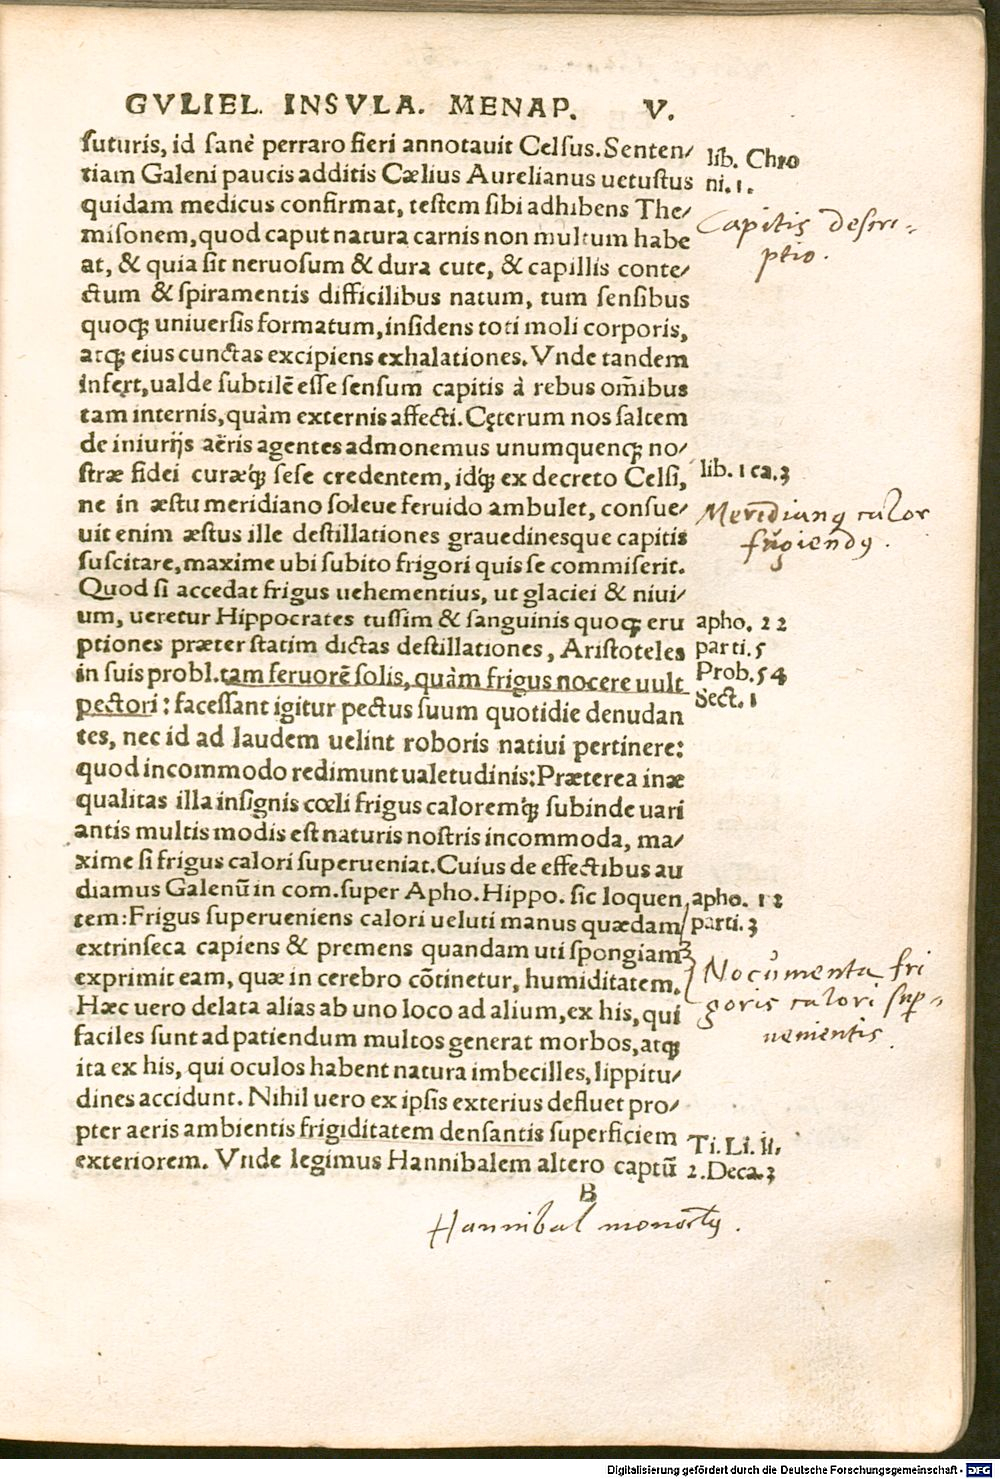 GVLIEL. INSVLA. MENAP. V.
suturis, id sanè perraro fieri annotauit Celsus. Senten/
tiam Galeni paucis additis Cælius Aurelianus uetustus
quidam medicus confirmat, testem sibi adhibens The/
misonem, quod caput natura carnis non multum habe
at, & quia sit neruosum & dura cute, & capillis conte/
ctum & spiramentis difficilibus natum, tum sensibus
quoq; uniuersis formatum, insidens toti moli corporis,
atq; eius cunctas excipiens exhalationes. Vnde tandem
infert, ualde subtilē esse sensum capitis à rebus om̄ibus
tam internis, quàm externis affecti. Cęterum nos saltem
de iniurijs aëris agentes admonemus unumquenq; no/
stræ fidei curæq́; sese credentem, idq́; ex decreto Celsi,
ne in æstu meridiano soleue feruido ambulet, consue/
uit enim æstus ille destillationes grauedinesque capitis
suscitare, maxime ubi subito frigori quis se commiserit.
Quod si accedat frigus uehementius, ut glaciei & niui/
um, ueretur Hippocrates tussim & sanguinis quoq; eru
ptiones præter statim dictas destillationes, Aristoteles
in suis probl. tam feruorē solis, quàm frigus nocere uult
pectori: facessant igitur pectus suum quotidie denudan
tes, nec id ad laudem uelint roboris natiui pertinere:
quod incommodo redimunt ualetudinis: Præterea inæ
qualitas illa insignis cœli frigus caloremq́; subinde uari
antis multis modis est naturis nostris incommoda, ma/
xime si frigus calori superueniat. Cuius de effectibus au
diamus Galenū in com. super Apho. Hippo. sic loquen
tem: Frigus superueniens calori ueluti manus quædam
extrinseca capiens & premens quandam uti spongiam
exprimit eam, quæ in cerebro cōtinetur, humiditatem.
Hæc uero delata alias ab uno loco ad alium, ex his, qui
faciles sunt ad patiendum multos generat morbos, atq;
ita ex his, qui oculos habent natura imbecilles, lippitu/
dines accidunt. Nihil uero ex ipsis exterius defluet pro/
pter aeris ambientis frigiditatem densantis superficiem
exteriorem. Vnde legimus Hannibalem altero captū
B
lib. Chro
ni. 1.
Capitis descri-
ptio.
lib. 1 ca. 3
Meridianꝯ calor
fugiendꝯ.
apho. 22
parti. 5
Prob. 54
Sect. 1
apho. 12
parti. 3
Nocumenta fri
goris calori sup-
uenientis.
Ti. Li. li.
2. Deca. 3
Hannibal
Digitalisierung gefördert durch die Deutsche Forschungsgemeinschaft - DFG